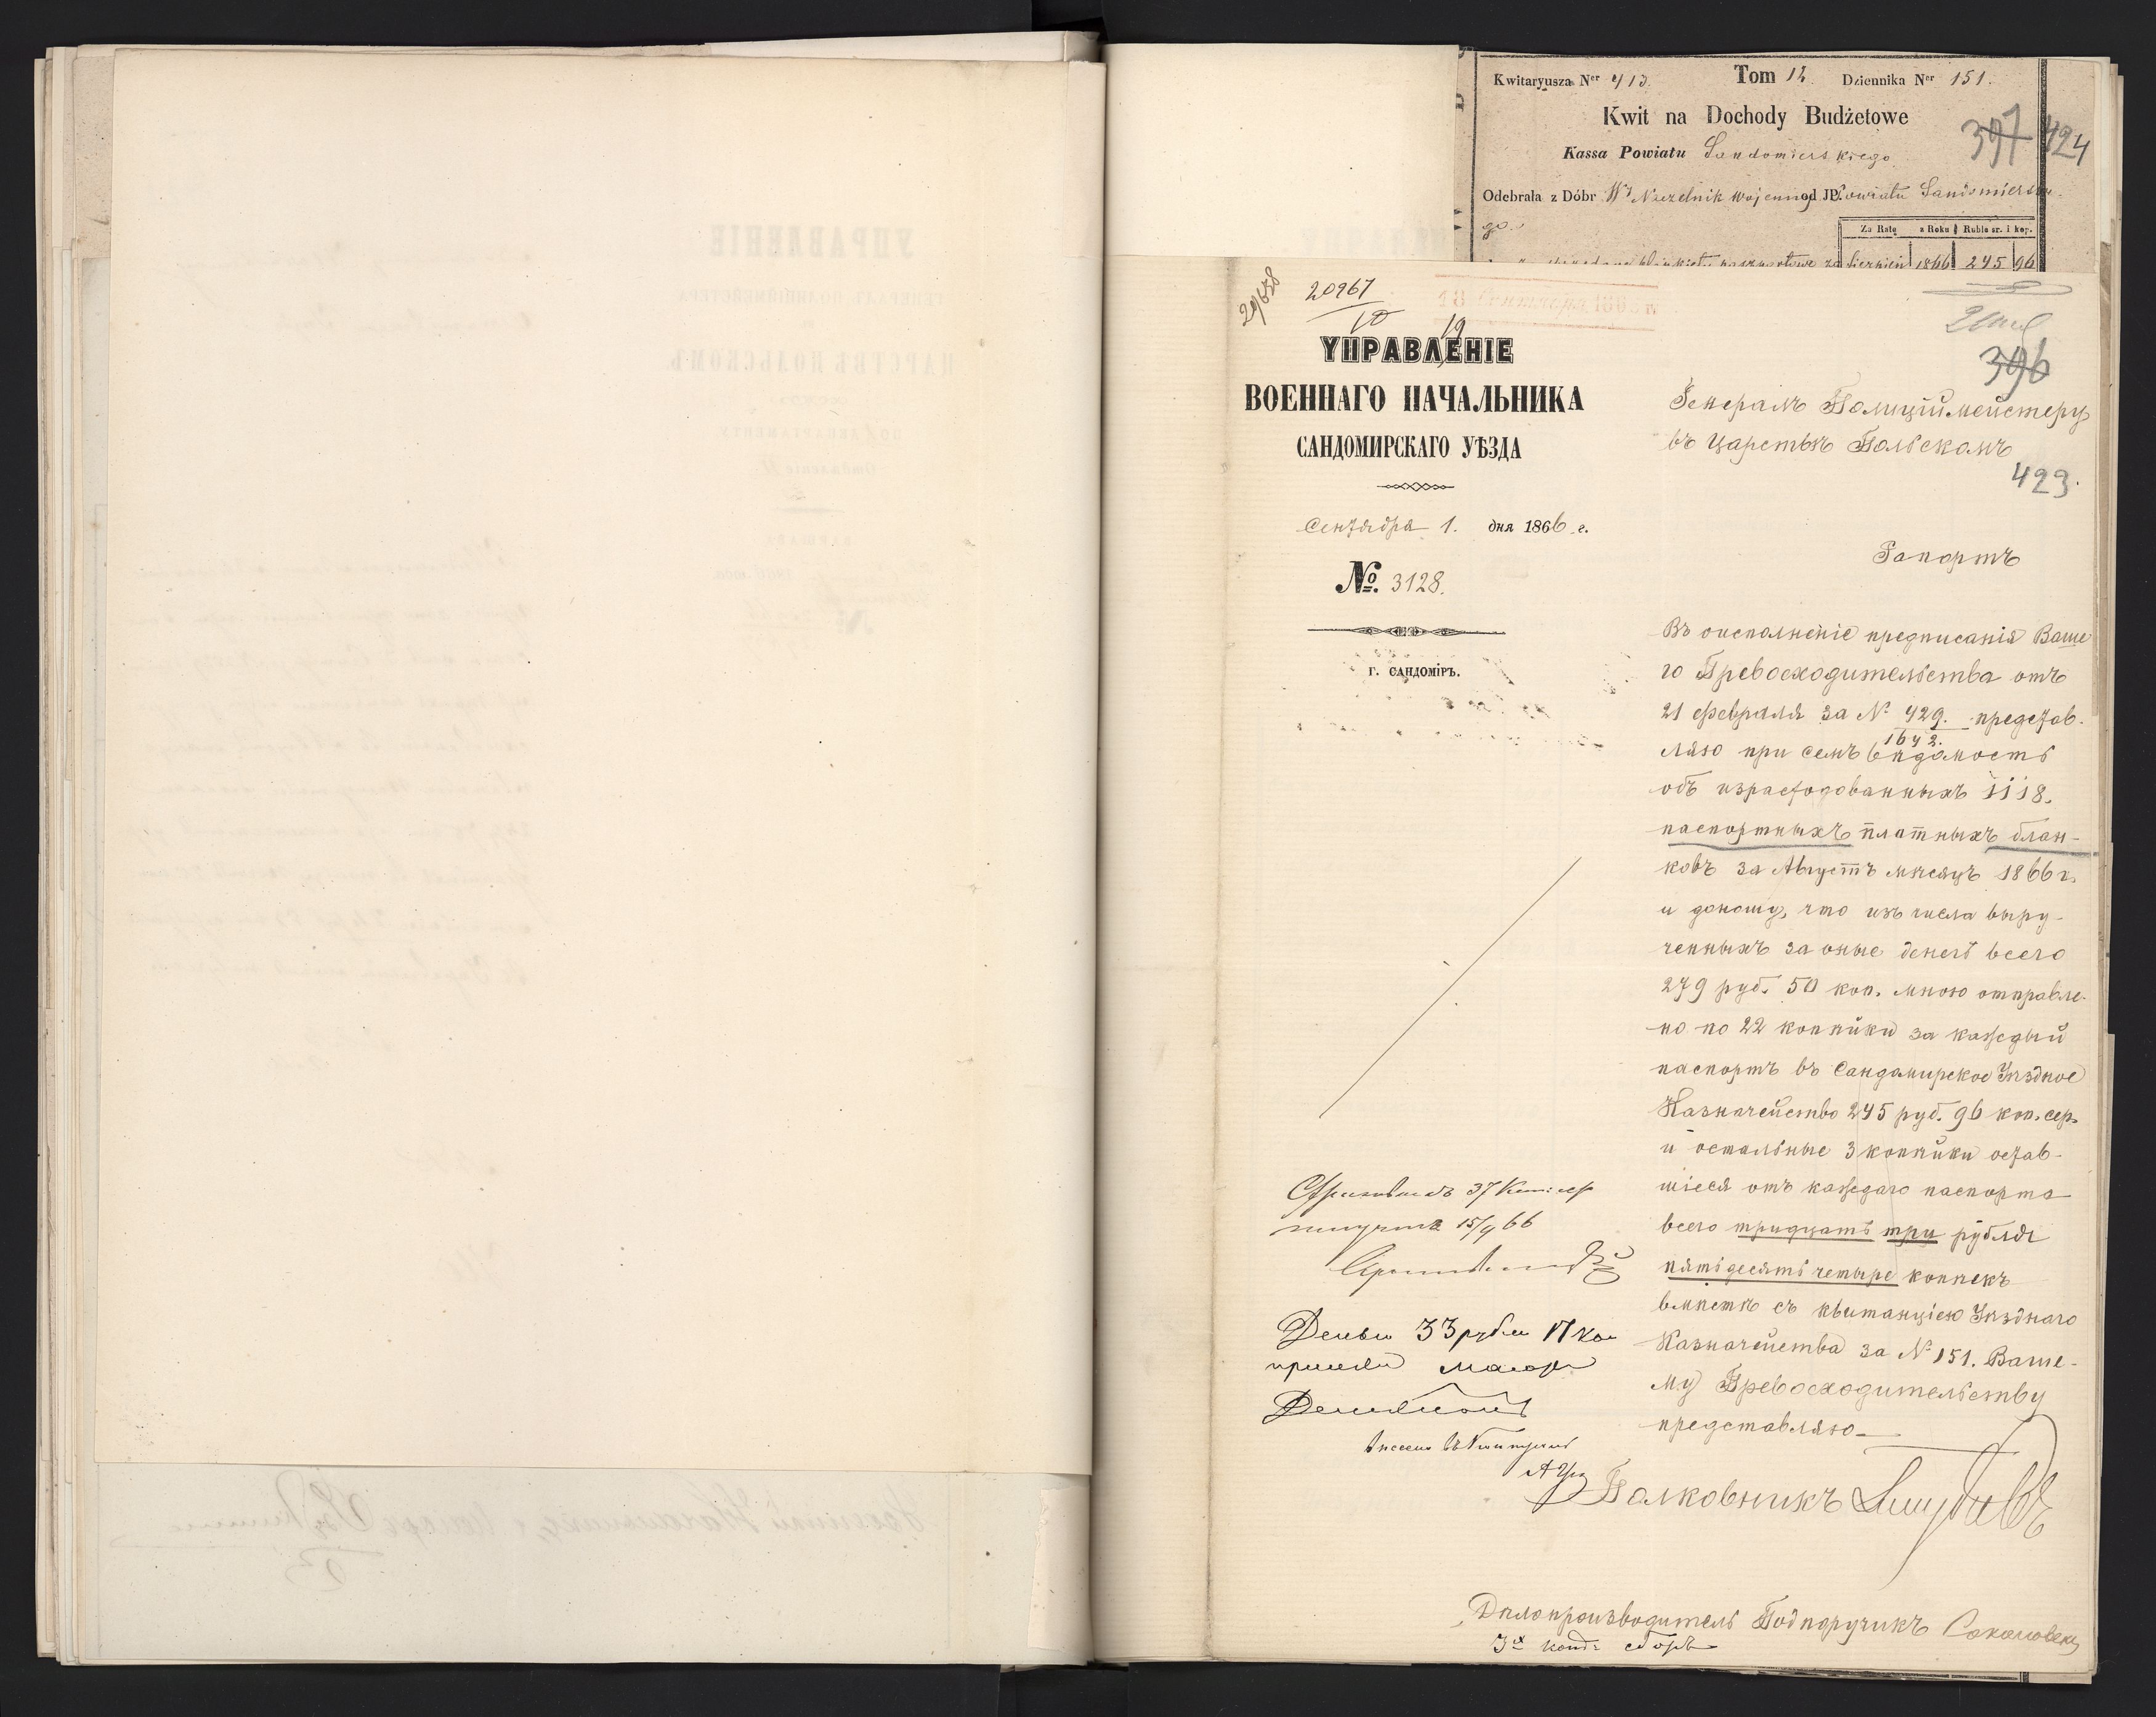 Kwitaryusza Ner 413. Tom 12. Dziennika Ner 151.
Kwit na Dochody Budżetowe
397 424
Kassa Powiatu Sandomierskiego
Odebrała z Dóbr Wy Naczelnik Wojenny od JP. Powiatu Sandomierskie
go.
Za Ratę z Roku Ruble sr. i kop.
blankiety paszportowe za Sierpień 1866 245 96
20967
10
18 Сентября 186 г.
19
396
УПРАВЛЕНІЕ
ВОЕННАГО НАЧАЛЬНИКА
САНДОМИРСКАГО УѢЗДА
Сентября 1. дня 1866 г.
№. 3128.
Г. САНДОМІРЪ.
Генералъ Полиціймейстеру
въ Царствѣ Польскомъ
423.
Рапортъ
Въ оисполненіе предписанія Ваше
го Превосходительства отъ
21 февраля за № 429. представ-
1642.
ляю при семъ вѣдомость
объ израсходованныхъ 1118.
паспортныхъ платныхъ блан-
ковъ за Августъ мѣсяцъ 1866 г.
и доношу, что изъ числа выру-
ченныхъ за оные денегъ всего
279 руб. 50 коп. мною отправле-
но по 22 копѣйки за каждый
паспортъ въ Сандомирское Уѣздное
Казначейство 245 руб. 96 коп. сер.
и остальные 3 копѣйки остав-
шіеся отъ каждаго паспорта
всего тридцать три рубля
пятьдесятъ четыре копѣекъ
вмѣстѣ съ квитанціею Уѣзднаго
Казначейства за № 151. Ваше-
му Превосходительству
представляю
15/9 66
Деньги 33 рубли 17 ко
принялъ маіоръ
Полковникъ
Дѣлопроизводитель Подпоручикъ Соколовскій